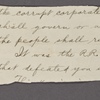 the corrupt corporat
shall govern or
the people shall r
It was the R.R.
that defeated you